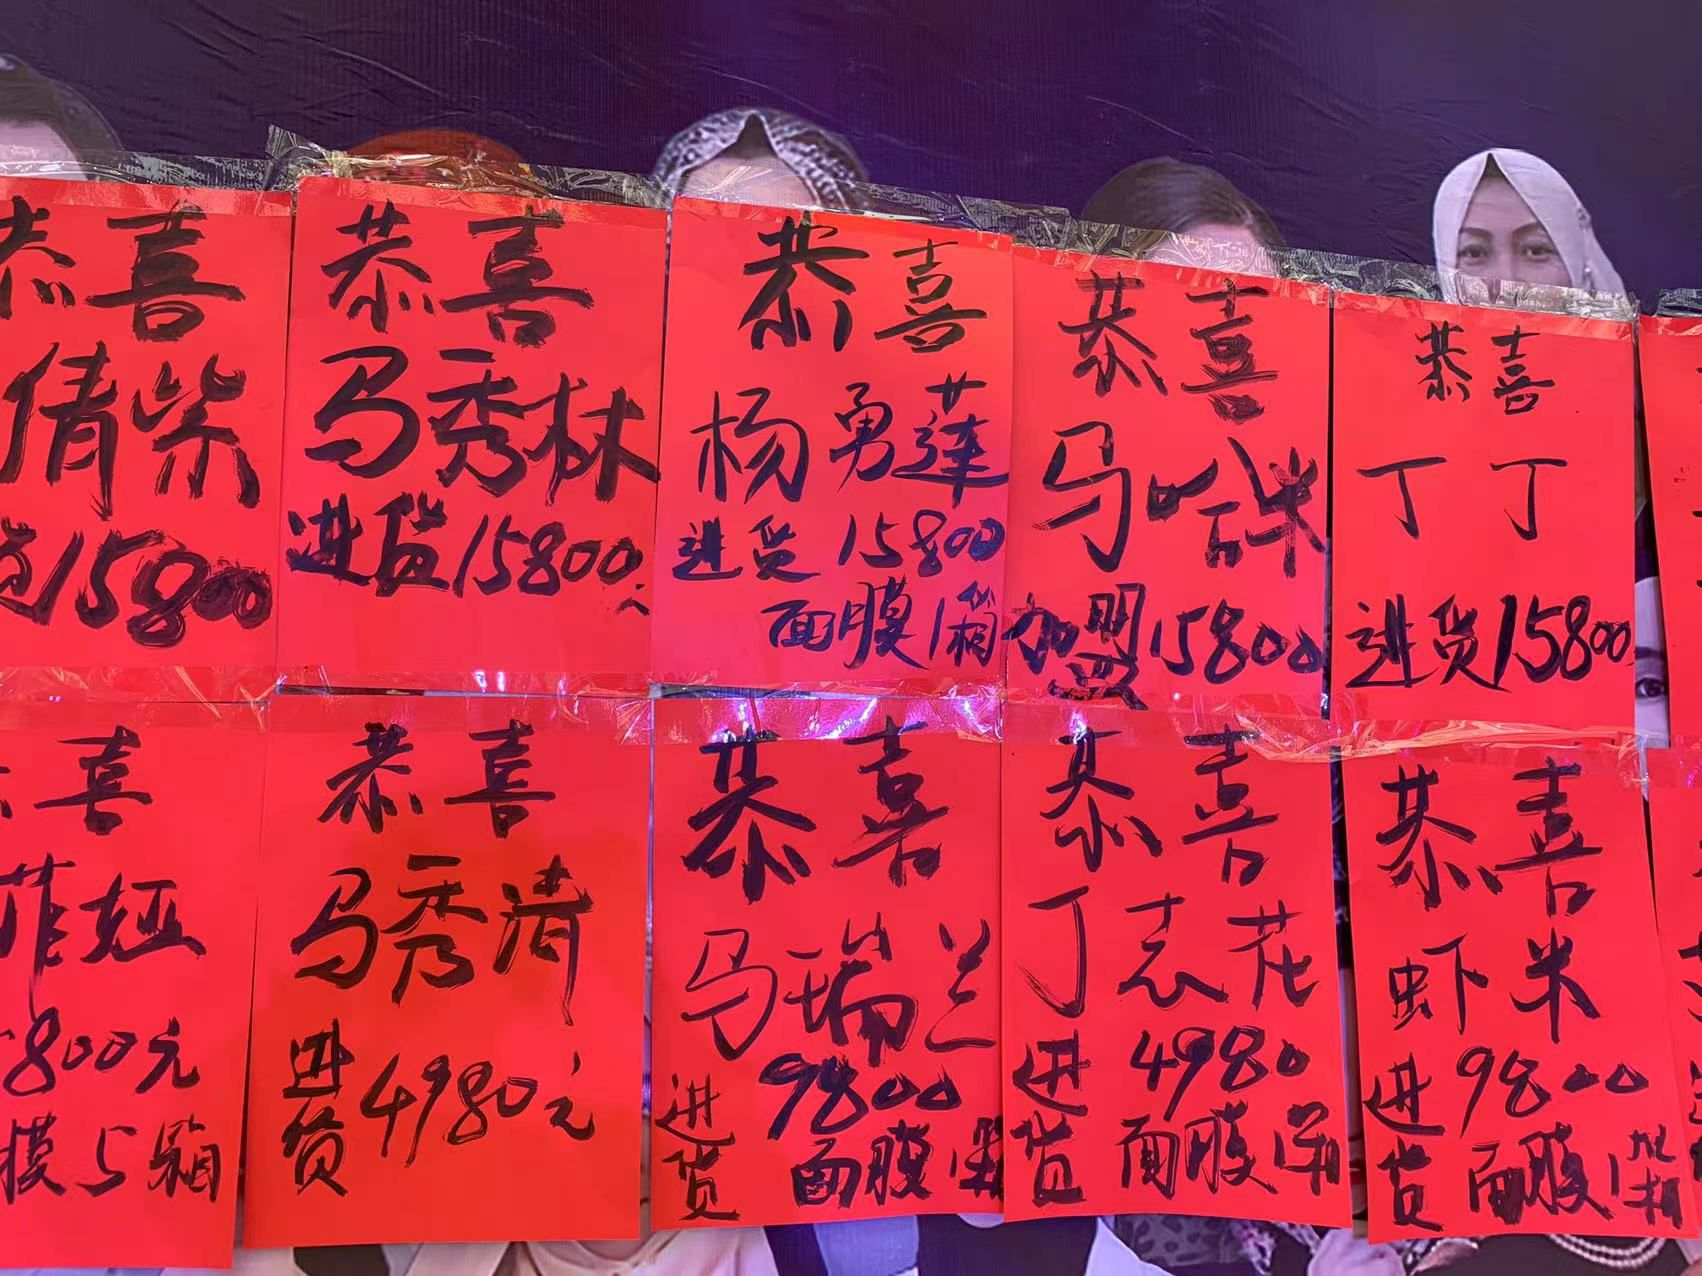 恭喜
倩柴
货15800
恭喜
马秀林
进货15800元
恭喜
杨勇莲
进货15800
面膜1箱
恭喜
马哈米
加盟15800
恭喜
丁丁
进货15800
恭喜
菲娅
5800元
膜5箱
恭喜
马秀清
进货4980元
恭喜
马瑞兰
进货9800
面膜1箱
恭喜
丁志花
进货4980
面膜1箱
恭喜
虾米
进货9800
面膜1箱